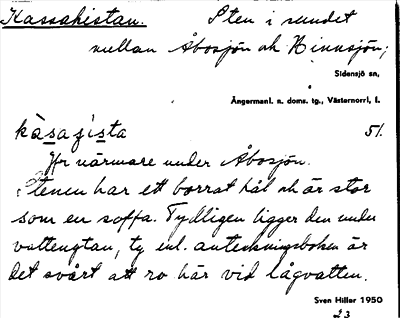 Kassakistan. Sten i sundet
mellan Åbosjön och Hinnsjön;
Sidensjö sn,
Ångermanl. n. doms. tg., Västernorrl. l.
kàsaʒista 51.
Jfr närmare under Åbosjön.
Stenen har ett borrat hål och är stor
som en soffa. Tydligen ligger den under
vattenytan, ty enl. anteckningsboken är
det svårt att ro här vid lågvatten.
Sven Hiller 1950
23